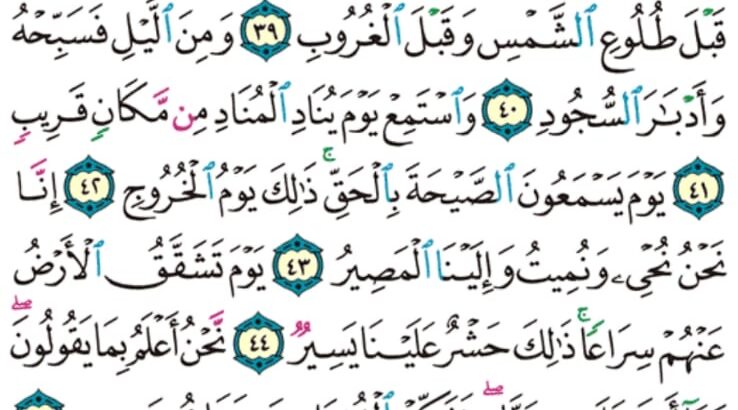 قَبْلَ طُلُوعِ ٱلشَّمْسِ وَقَبْلَ ٱلْغُرُوبِ ٣٩ وَمِنَ ٱلَّيْلِ فَسَبِّحْهُ
وَأَدْبَٰرَ ٱلسُّجُودِ ٤٠ وَٱسْتَمِعْ يَوْمَ يُنَادِ ٱلْمُنَادِ مِن مَّكَانٍ قَرِيبٍ
٤١ يَوْمَ يَسْمَعُونَ ٱلصَّيْحَةَ بِٱلْحَقِّ ۚ ذَٰلِكَ يَوْمُ ٱلْخُرُوجِ ٤٢ إِنَّا
نَحْنُ نُحْىِۦ وَنُمِيتُ وَإِلَيْنَا ٱلْمَصِيرُ ٤٣ يَوْمَ تَشَقَّقُ ٱلْأَرْضُ
عَنْهُمْ سِرَاعًا ۚ ذَٰلِكَ حَشْرٌ عَلَيْنَا يَسِيرٌ ٤٤ نَّحْنُ أَعْلَمُ بِمَا يَقُولُونَ ۖ